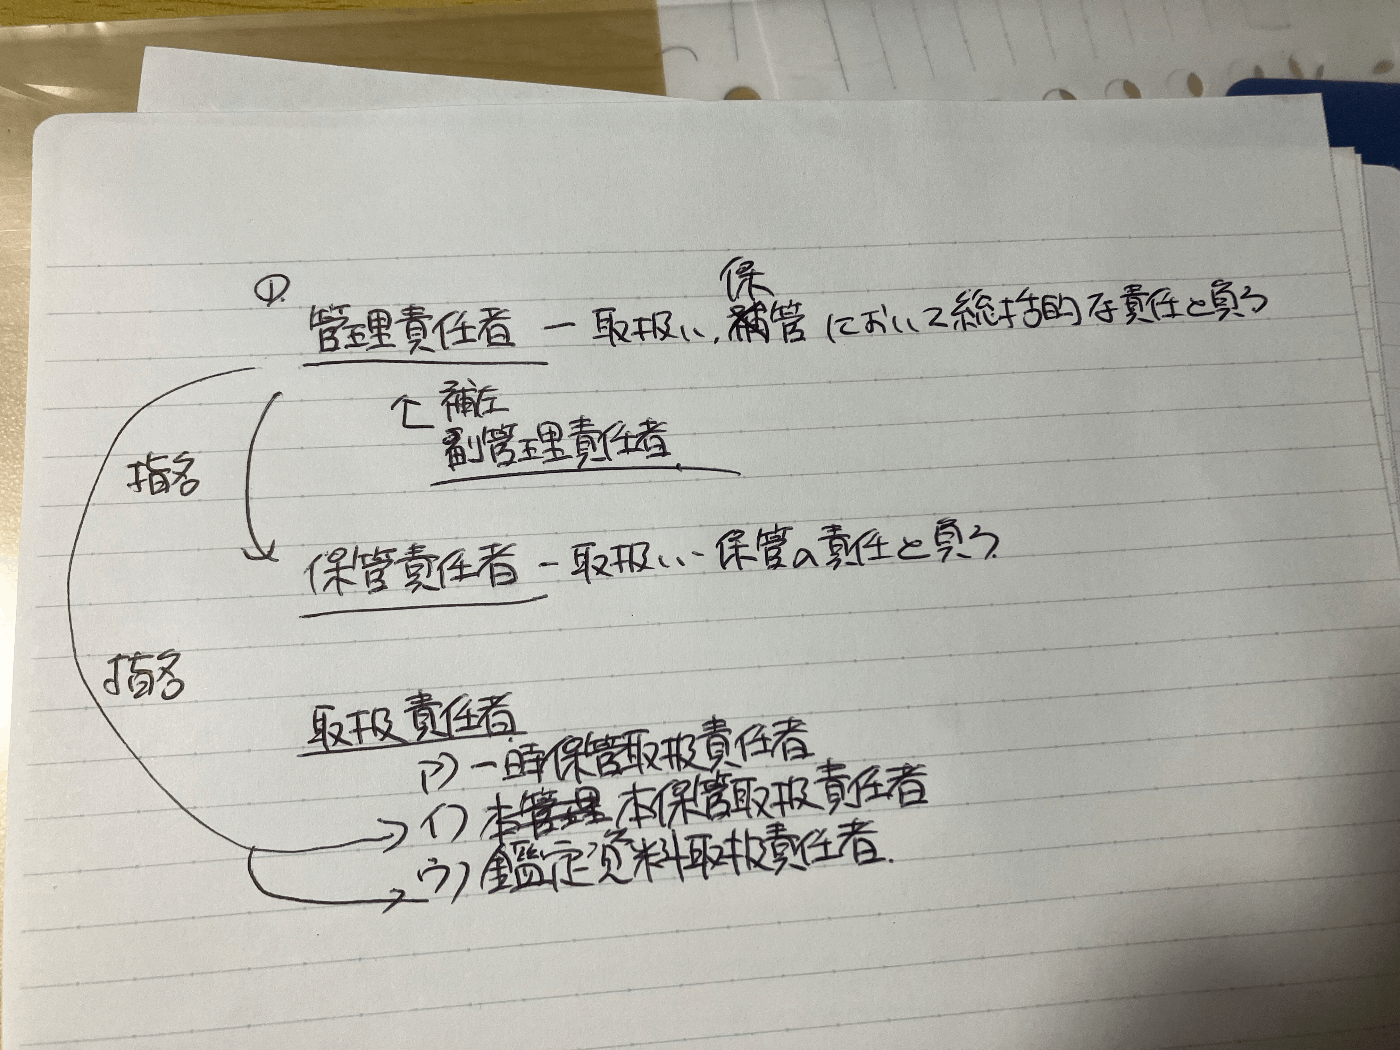 ①
保
管理責任者 ー 取扱い、補管において総括的な責任を負う
↑ 補佐
副管理責任者
指名
保管責任者 ー 取扱い・保管の責任を負う
指名
取扱責任者
ア) 一時保管取扱責任者
イ) 本管理 本保管取扱責任者
ウ) 鑑定資料取扱責任者.